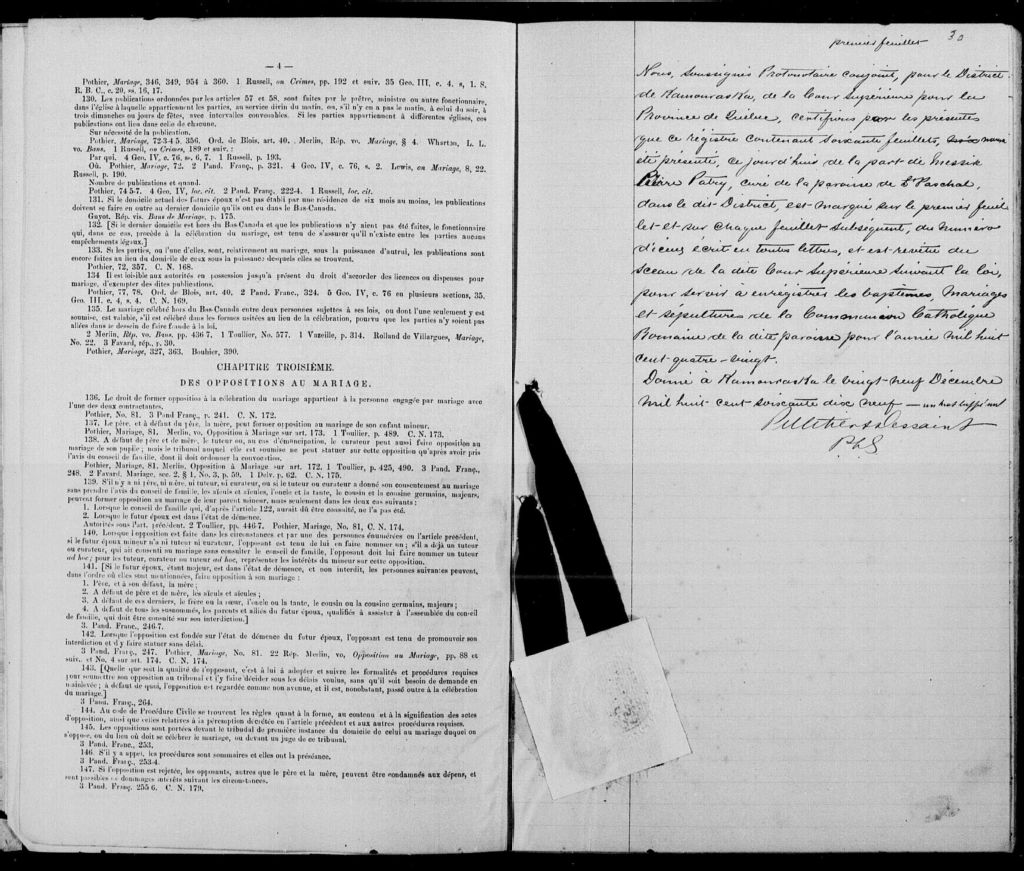 — 4 —
Pothier, Mariage, 346, 349, 954 à 360. 1 Russell, on Crimes, pp. 192 et suiv. 35 Geo. III, c. 4, s, 1. S.
R. B. C., c. 20, ss. 16, 17.
130. Les publications ordonnées par les articles 57 et 58, sont faites par le prêtre, ministre ou autre fonctionnaire,
dans l'église à laquelle appartiennent les parties, au service divin du matin, ou, s'il n'y en a pas le matin, à celui du soir, à
trois dimanches ou jours de fêtes, avec intervalles convenables. Si les parties appartiennent à différentes églises, ces
publications ont lieu dans celle de chacune.
Sur nécessité de la publication.
Pothier, Mariage, 72-3-4 5. 356. Ord. de Blois, art. 40. Merlin, Rép. vo. Mariage, § 4. Wharton, L. L.
vo. Bans. 1 Russell, on Crimes, 189 et suiv. :
Par qui. 4 Geo. IV, c. 76, ss. 6, 7. 1 Russell, p. 193.
Où. Pothier, Mariage, 72. 2 Pand. Franç., p. 321. 4 Geo. IV, c. 76, s. 2. Lewis, on Mariage, 8, 22.
Russell, p. 190.
Nombre de publications et quand.
Pothier, 74 5-7. 4 Geo, IV, loc. cit. 2 Pand. Franç, 222-4. 1 Russell, loc. cit.
131. Si le domicile actuel des futurs époux n'est pas établi par une résidence de six mois au moins, les publications
doivent se faire en outre au dernier domicile qu'ils ont eu dans le Bas-Canada.
Guyot. Rép. vis. Bans de Mariage, p. 175.
132. [Si le dernier domicile est hors du Bas Canada et que les publications n'y aient pas été faites, le fonctionnaire
qui, dans ce cas, procède à la célébration du mariage, est tenu de s'assurer qu'il n'existe entre les parties aucuns
empêchements légaux.]
133. Si les parties, ou l'une d'elles, sont, relativement au mariage, sous la puissance d'autrui, les publications sont
encore faites au lieu du domicile de ceux sous la puissance desquels elles se trouvent.
Pothier, 72, 357. C. N. 168.
134 Il est loisible aux autorités en possession jusqu'à présent du droit d'accorder des licences ou dispenses pour
mariage, d'exempter des dites publications.
Pothier, 77, 78. Ord. de Blois, art. 40. 2 Pand. Franc., 324. 5 Geo. IV, c. 76 en plusieurs sections, 35.
Geo. III. c. 4, s. 4. C. N. 169.
135. Le mariage célébré hors du Bas-Canada entre deux personnes sujettes à ses lois, ou dont l'une seulement y est
soumise, est valable, s'il est célébré dans les formes usitées au lieu de la célébration, pourvu que les parties n'y soient pas
allées dans le dessein de faire fraude à la loi.
2 Merlin, Rép. vo. Bans, pp. 436-7. 1 Toullier, No. 577. 1 Vazeille, p. 314. Rolland de Villargues, Mariage,
No. 22. 3 Favard, rép., p. 30.
Pothier, Mariage, 327, 363. Bouhier, 390.
CHAPITRE TROISIÈME.
DES OPPOSITIONS AU MARIAGE.
136. Le droit de former opposition à la célébration du mariage appartient à la personne engagée par mariage avec
l'une des deux contractantes.
Pothier, No. 81. 3 Pand Franç., p. 241. C. N. 172.
137. Le père, et à défaut du père, la mère, peut former opposition au mariage de son enfant mineur.
Pothier, Mariage, 81. Merlin, vo. Opposition à Mariage sur art. 173. 1 Toullier, p. 489. C. N. 173.
138. A défaut de père et de mère, le tuteur ou, au cas d'émancipation, le curateur peut aussi faire opposition au
mariage de son pupille ; mais le tribunal auquel elle est soumise ne peut statuer sur cette opposition qu'après avoir pris
l'avis du conseil de famille, dont il doit ordonner la convocation.
Pothier, Mariage, 81. Merlin, Opposition à Mariage sur art. 172. 1 Toullier, p. 425, 490. 3 Pand. Franç.,
248. 2 Favard, Mariage, sec. 2, § 1, No. 3, p. 59. 1 Delv. p. 62. C. N. 175.
139. S'il n'y a ni père, ni mère, ni tuteur, ni curateur, ou si le tuteur ou curateur a donné son consentement au mariage
sans prendre l'avis du conseil de famille, les aïeuls et aïeules, l'oncle et la tante, le cousin et la cousine germains, majeurs,
peuvent former opposition au mariage de leur parent mineur, mais seulement dans les deux cas suivants :
1. Lorsque le conseil de famille qui, d'après l'article 122, aurait dû être consulté, ne l'a pas été.
2. Lorsque le futur époux est dans l'état de démence.
Autorités sous l'art. précédent. 2 Toullier, pp. 446-7. Pothier, Mariage, No. 81, C. N. 174.
140. Lorsque l'opposition est faite dans les circonstances et par une des personnes énumérées en l'article précédent,
si le futur époux mineur n'a ni tuteur ni curateur, l'opposant est tenu de lui en faire nommer un ; s'il a déjà un tuteur
ou curateur, qui ait consenti au mariage sans consulter le conseil de famille, l'opposant doit lui faire nommer un tuteur
ad hoc ; pour les tuteur, curateur ou tuteur ad hoc, représenter les intérêts du mineur sur cette opposition.
141. [Si le futur époux, étant majeur, est dans l'état de démence, et non interdit, les personnes suivantes peuvent,
dans l'ordre où elles sont mentionnées, faire opposition à son mariage :
1. Père, et à son défaut, la mère ;
2. A défaut de père et de mère, les aïeuls et aïeules ;
3. A défaut de ces derniers, le frère ou la sœur, l'oncle ou la tante, le cousin ou la cousine germains, majeurs ;
4. A défaut de tous les susnommés, les parents et alliés du futur époux, qualifiés à assister à l'assemblée du conseil
de famille, qui doit être consulté sur son interdiction.]
3. Pand. Franc., 246-7.
142. Lorsque l'opposition est fondée sur l'état de démence du futur époux, l'opposant est tenu de promouvoir son
interdiction et d'y faire statuer sans délai.
3 Pand. Franç., 247. Pothier, Mariage, No. 81. 22 Rép. Merlin, vo, Opposition au Mariage, pp. 88 et
suiv. et No. 4 sur art. 174. C. N. 174.
143. [Quelque que soit la qualité de l'opposant, c'est à lui à adopter et suivre les formalités et procédures requises
pour soumettre son opposition au tribunal et l'y faire décider sous les délais voulus, sans qu'il soit besoin de demande en
mainlevée ; à défaut de quoi, l'opposition est regardée comme non avenue, et il est, nonobstant, passé outre à la célébration
du mariage.]
3 Pand. Franç., 264.
144. Au code de Procédure Civile se trouvent les règles quant à la forme, au contenu et à la signification des actes
d'opposition, ainsi que celles relatives à la péremption décrétée en l'article précédent et aux autres procédures requises.
145. Les oppositions sont portées devant le tribunal de première instance du domicile de celui au mariage duquel on
s'oppose, ou du lieu où doit se célébrer le mariage, ou devant un juge de ce tribunal.
3 Pand. Franc., 253.
146. S'il y a appel, les procédures sont sommaires et elles ont la préséance.
3 Pand. Franç., 253-4.
147. Si l'opposition est rejetée, les opposants, autres que le père et la mère, peuvent être condamnés aux dépens, et
sont passibles de dommages intérêts suivant les circonstances.
3 Pand. Franç. 255 6. C. N. 179.
premier feuillet
Nous, soussignés Protonotaire conjoint, pour le District
de Kamouraska, de la Cour Supérieure pour la
Province de Québec, certifions par les présentes
que ce régistre contenant soixante feuillets,
été présenté, ce jourd'hui de la part de Messire
Pierre Patry, curé de la paroisse de St Paschal,
dans le dit District, est marqué sur le premier feuil
let et sur chaque feuillet subséquent, du numéro
d'iceux écrit en toutes lettres, et est revêtu du
sceau de la dite Cour Supérieure suivant la loi,
pour servir à enrégistrer les baptêmes, Mariages
et sépultures de la Communion Catholique
Romaine de la dite paroisse pour l'année Mil huit
cent quatre-vingt.
Donné à Kamouraska le vingt-neuf Décembre
Mil huit cent soixante dix neuf —
Pelletier & Dessaint
P.C.S